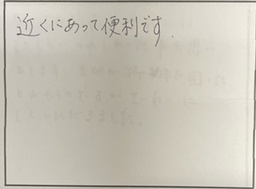 近くにあって便利です.